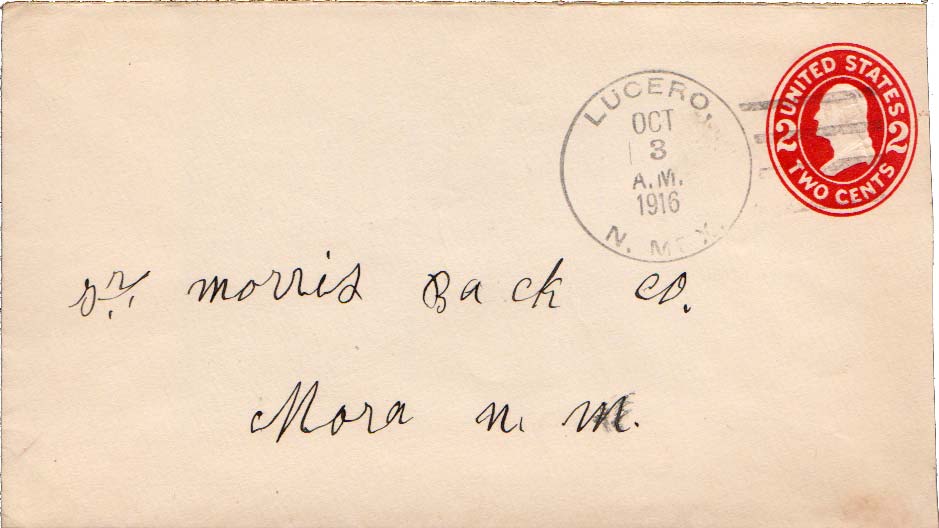 LUCERO,
OCT
3
A.M.
1916
N. MEX.
UNITED STATES
2 2
TWO CENTS
Sr. Morris Back Co.
Mora N. M.